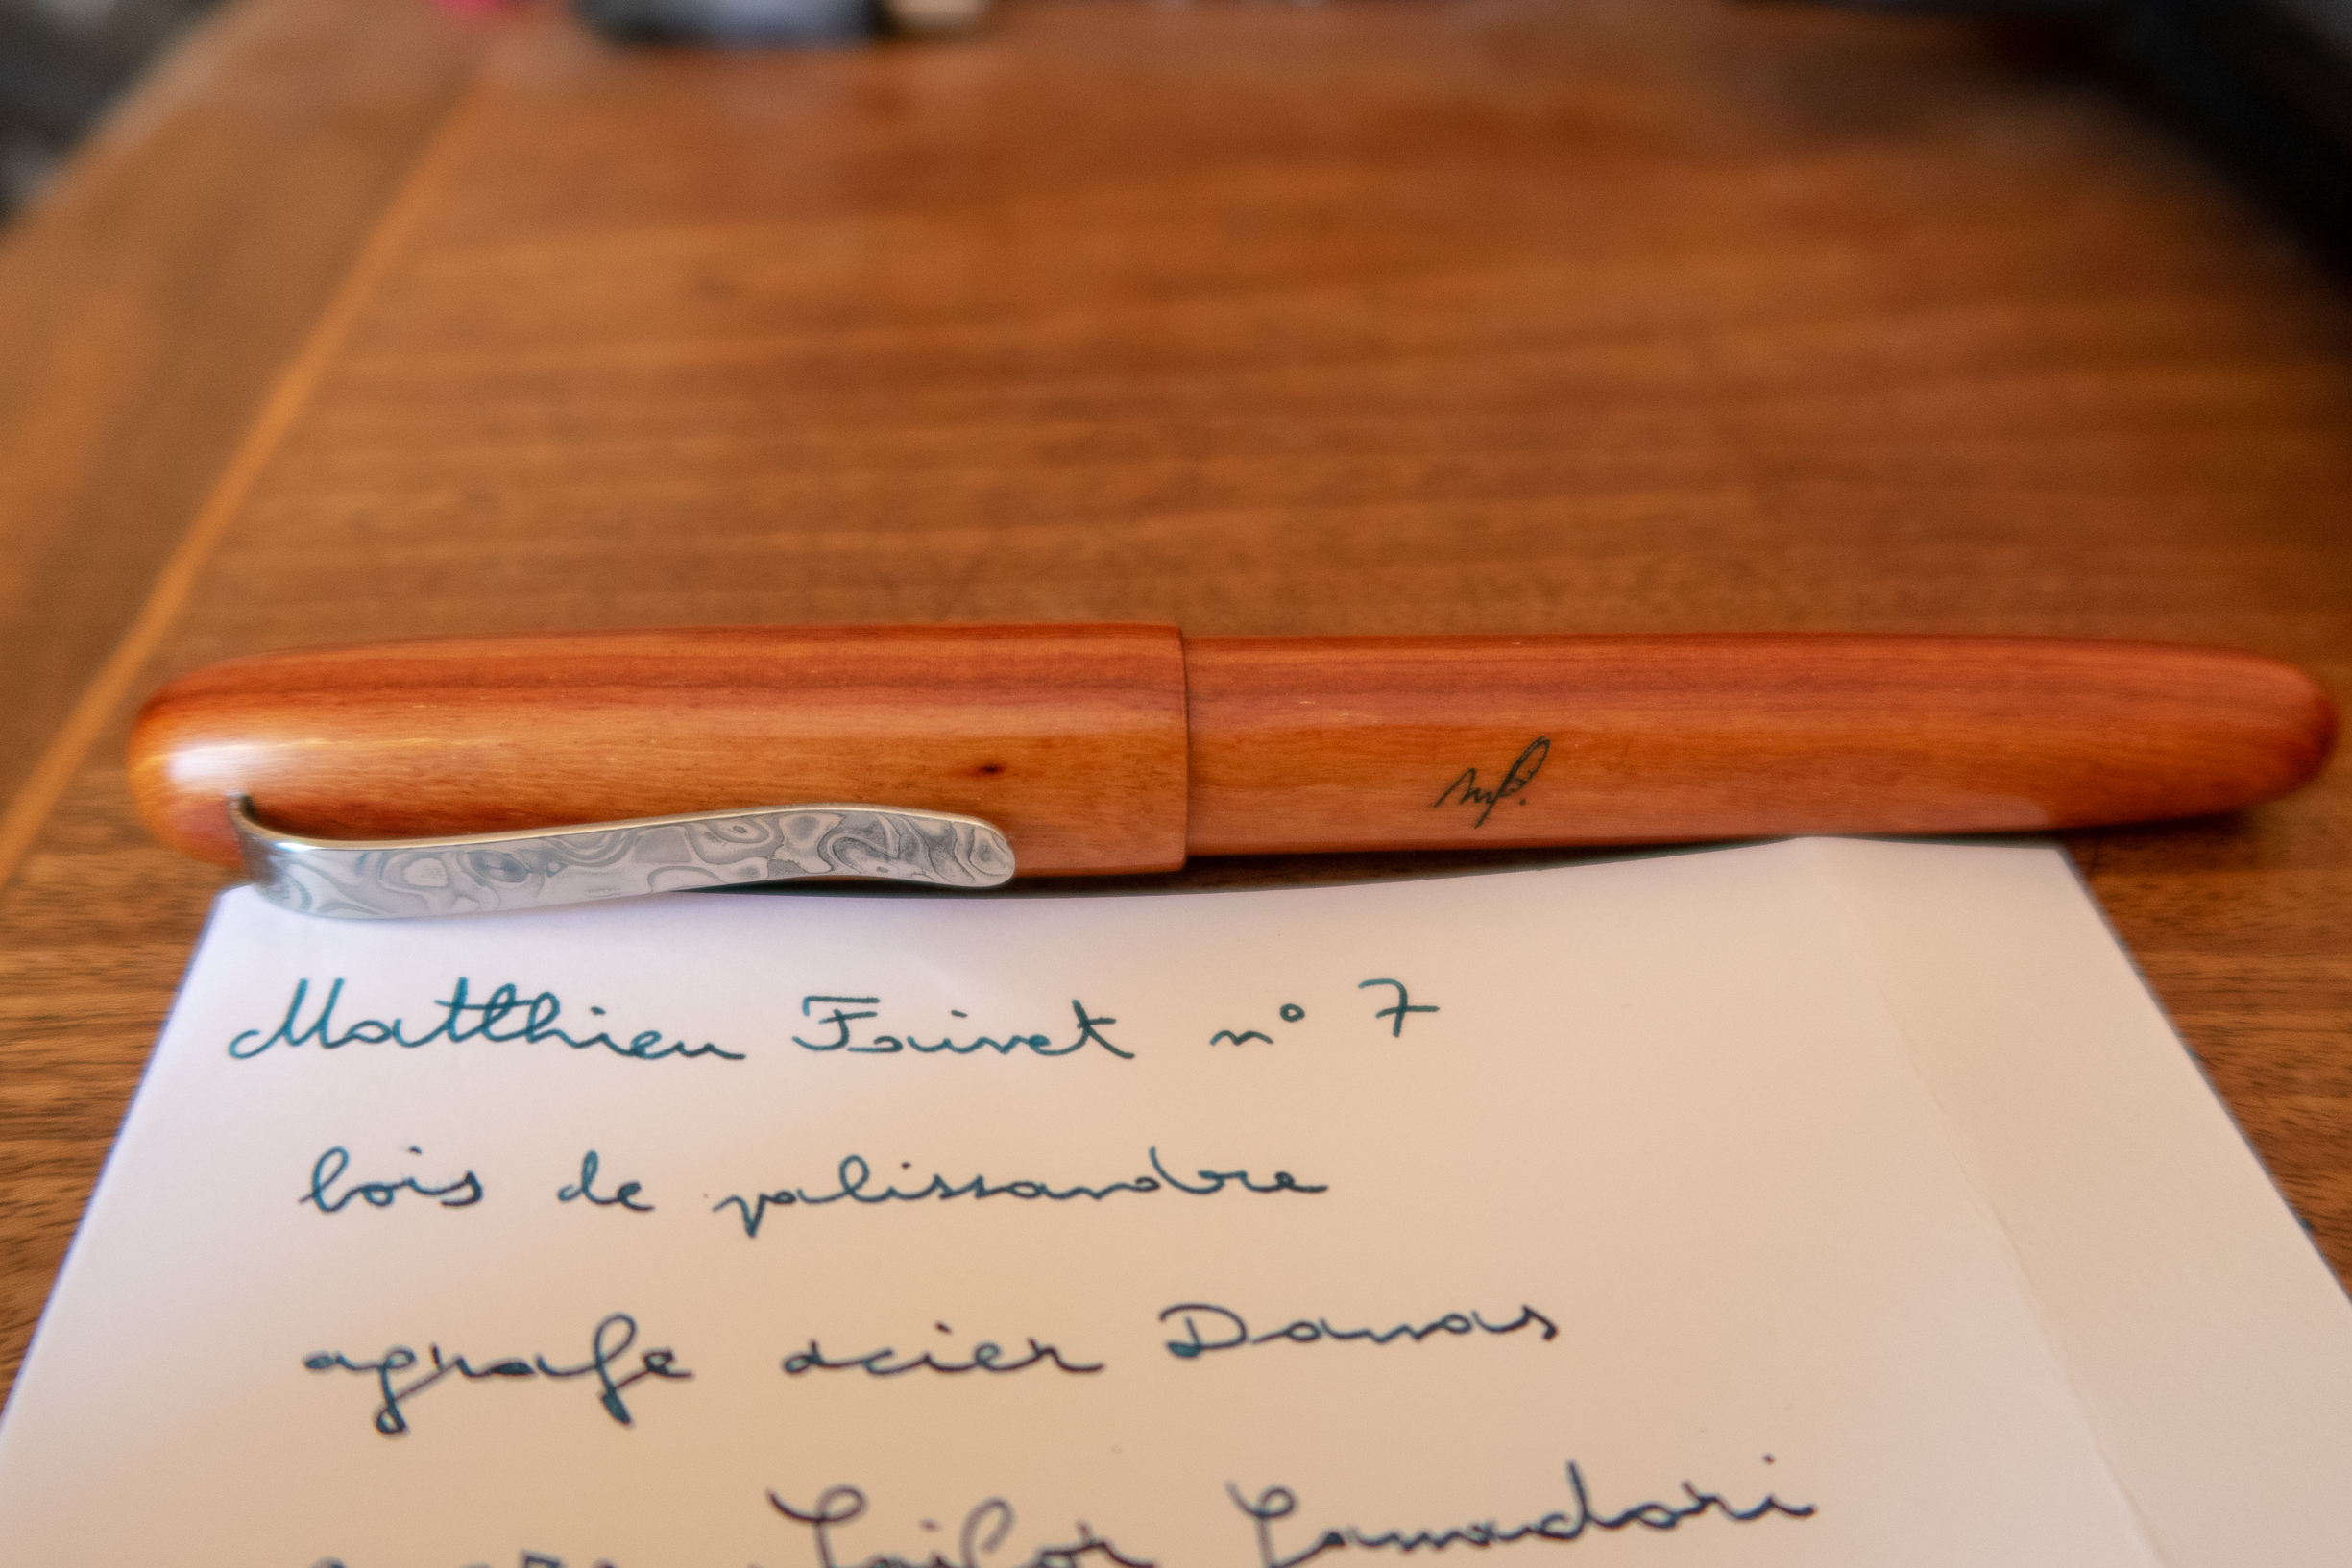 Matthieu Faivet n° 7
bois de palissandre
agrafe acier Damas
Sailor Yamadori